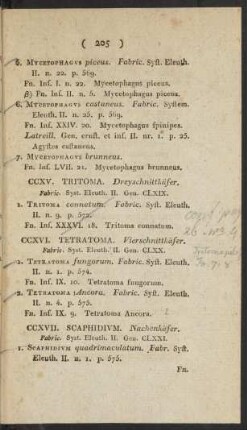 ( 205 )
5. MYCETOPHAGVS piceus. Fabric. Syst. Eleuth.
II. n. 22. p. 569.
Fn. Ins. I. n. 22. Mycetophagus piceus.
β) Fn. Ins. II. n. 5. Mycetophagus piceus.
6. MYCETOPHAGVS castaneus. Fabric. System.
Eleuth. II. n. 25. p. 569.
Fn. Ins. XXIV. 20. Mycetophagus spinipes.
Latreill. Gen. crust. et ins. II. nr. 1. p. 23.
Agystos castaneus.
7. MYCETOPHAGVS brunneus.
Fn. Ins. LVII. 21. Mycetophagus brunneus.
CCXV. TRITOMA. Dreyschnittkäfer.
Fabric. Syst. Eleuth. II. Gen. CLXIX.
1. TRITOMA connatum. Fabric. Syst. Eleuth.
II. n. 9. p. 572.
Fn. Ins. XXXVI. 18. Tritoma connatum.
CCXVI. TETRATOMA. Vierschnittkäfer.
Fabric. Syst. Eleuth. II. Gen. CLXX.
1. TETRATOMA fungorum. Fabric. Syst. Eleuth.
II. n. 1. p. 574.
Fn. Ins. IX. 10. Tetratoma fungorum.
2. TETRATOMA Ancora. Fabric. Syst. Eleuth.
II. n. 4. p. 575.
Fn. Ins. IX. 9. Tetratoma Ancora.
CCXVII. SCAPHIDIVM. Nachenkäfer.
Fabric. Syst. Eleuth. II. Gen. CLXXI.
1. SCAPHIDIVM quadrimaculatum. Fabr. Syst.
Eleuth. II. n. 1. p. 575.
Fn.